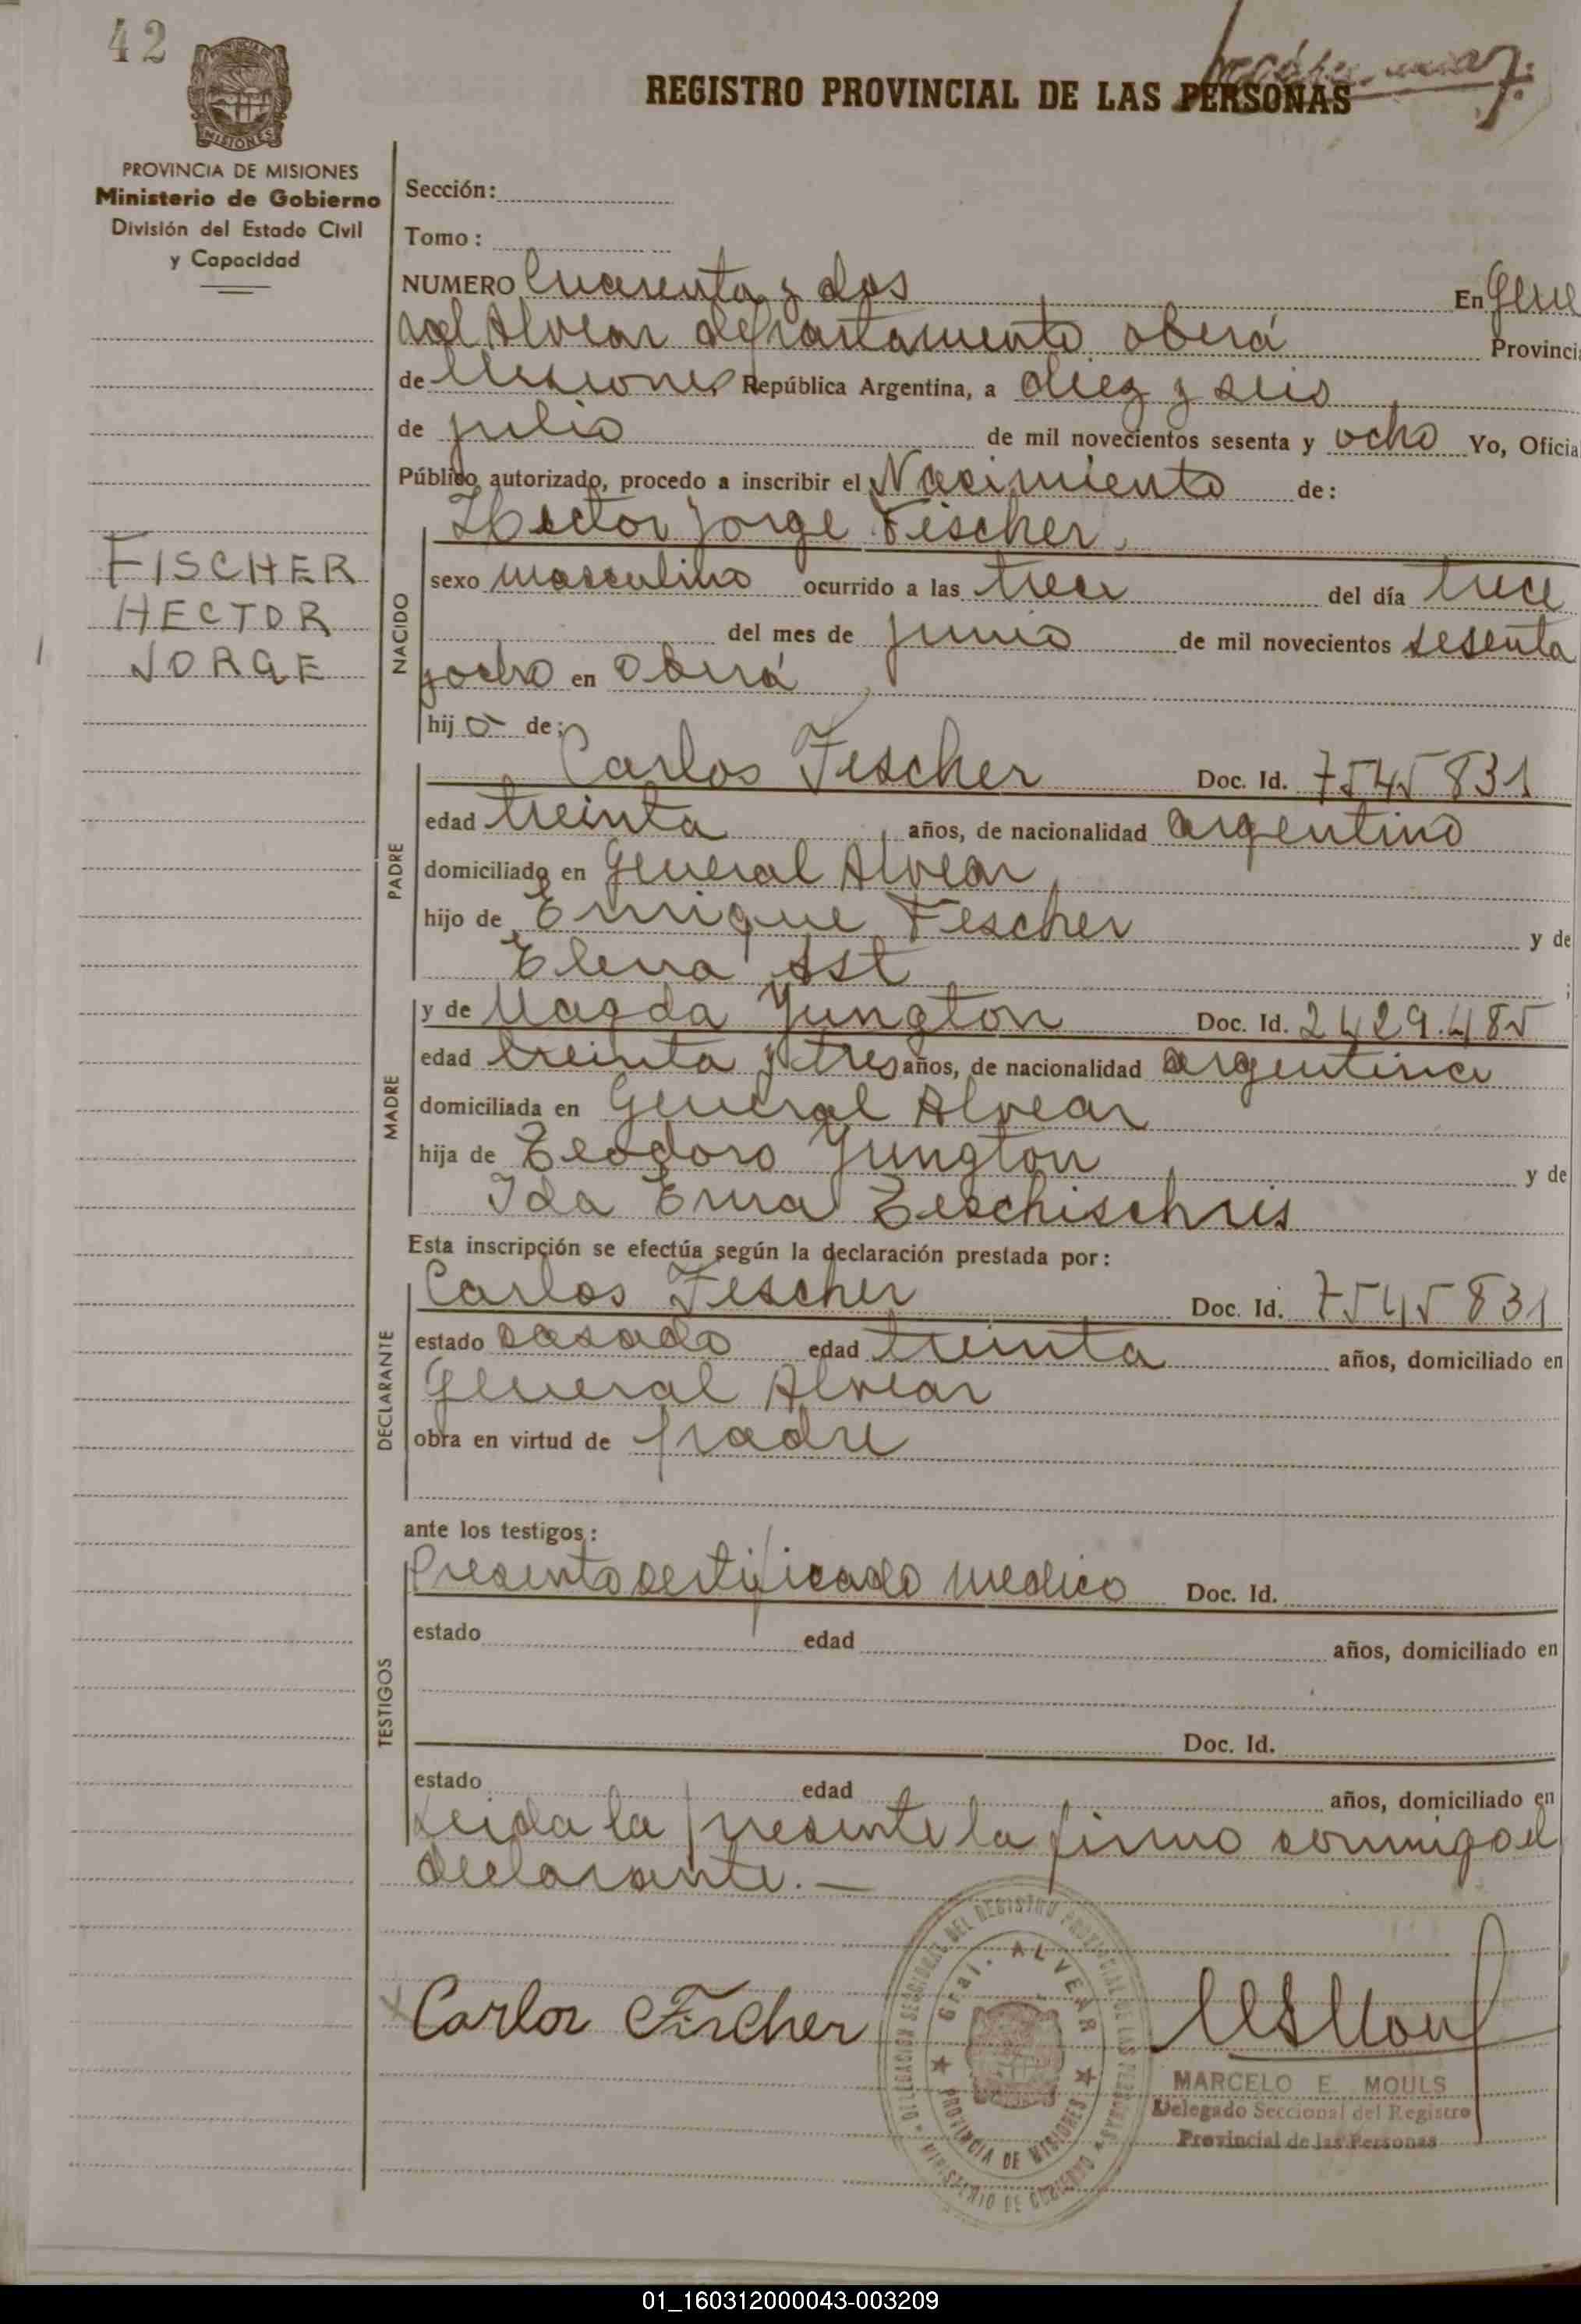 42
REGISTRO PROVINCIAL DE LAS PERSONAS
PROVINCIA DE MISIONES
Ministerio de Gobierno
División del Estado Civil
y Capacidad
Sección:
Tomo:
NUMERO Cuarenta y dos En Gene
ral Alvear departamento Oberá Provinci
de Misiones República Argentina, a diez y seis
de julio de mil novecientos sesenta y ocho Yo, Oficia
Público autorizado, procedo a inscribir el Nacimiento de:
Hector Jorge Fischer
FISCHER
HECTOR
JORGE
NACIDO
sexo masculino ocurrido a las trece del día trece
del mes de junio de mil novecientos sesenta
y ocho en Oberá
hijo de:
PADRE
Carlos Fischer Doc. Id. 7545831
edad treinta años, de nacionalidad argentino
domiciliado en General Alvear
hijo de Enrique Fischer y de
Elena Ast
MADRE
y de Magda Yungton Doc. Id. 2429.485
edad treinta y tres años, de nacionalidad argentina
domiciliada en General Alvear
hija de Teodoro Yungton y de
Ida Erna
Esta inscripción se efectúa según la declaración prestada por:
DECLARANTE
Carlos Fischer Doc. Id. 7545831
estado casado edad treinta años, domiciliado en
General Alvear
obra en virtud de padre
ante los testigos:
TESTIGOS
Presento certificado medico Doc. Id.
estado edad años, domiciliado en
Doc. Id.
estado edad años, domiciliado en
Leida la presente la firmo conmigo el
declarante.—
Carlos Fischer
DELEGACION SECCIONAL DEL REGISTRO PROVINCIAL DE LAS PERSONAS
MINISTERIO DE GOBIERNO
Gral. ALVEAR
PROVINCIA DE MISIONES
MARCELO E. MOULS
Delegado Seccional del Registro
Provincial de las Personas
01_160312000043-003209